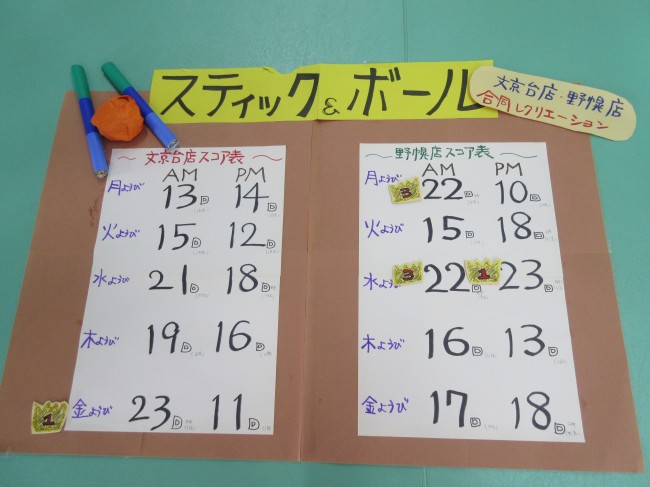 スティック&ボール
文京台店・野幌店
合同レクリエーション
～文京台店スコア表～
AM PM
月ようび 13 D 14 D
火ようび 15 D 12 D
水ようび 21 D 18 D
木ようび 19 D 16 D
1 金ようび 23 D 11 D
～野幌店スコア表～
AM PM
月ようび 3 22 D 10 D
火ようび 15 D 18 D
水ようび 3 22 D 1 23 D
木ようび 16 D 13 D
金ようび 17 D 18 D